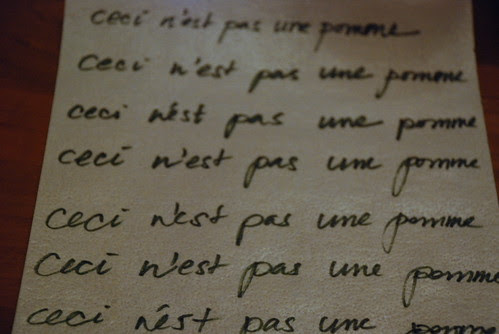 ceci n'est pas une pomme
ceci n'est pas une pomme
ceci n'est pas une pomme
ceci n'est pas une pomme
ceci n'est pas une pomme
ceci n'est pas une pomme
ceci n'est pas une pomme